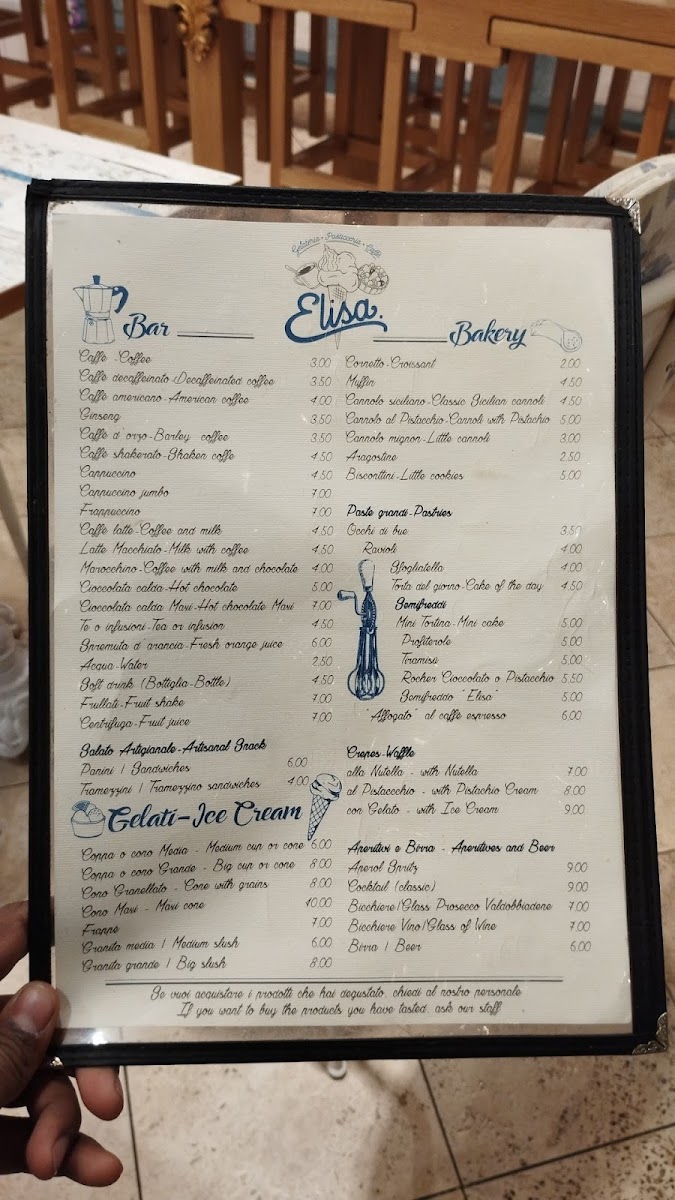 Gelateria - Pasticceria - Caffè
Elisa.
Bar
Caffè - Coffee 3.00
Caffè decaffeinato - Decaffeinated coffee 3.50
Caffè americano - American coffee 4.00
Ginseng 3.50
Caffè d'orzo - Barley coffee 3.50
Caffè shakerato - Shaken coffe 4.50
Cappuccino 4.50
Cappuccino jumbo 7.00
Frappuccino 7.00
Caffè latte - Coffee and milk 4.50
Latte Macchiato - Milk with coffee 4.50
Marocchino - Coffee with milk and chocolate 4.00
Cioccolata calda - Hot chocolate 5.00
Cioccolata calda Maxi - Hot chocolate Maxi 7.00
Te o infusioni - Tea or infusion 4.50
Spremuta d'arancia - Fresh orange juice 6.00
Acqua - Water 2.50
Soft drink (Bottiglia - Bottle) 4.50
Frullati - Fruit shake 7.00
Centrifuga - Fruit juice 7.00
Salato Artigianale - Artisanal Snack
Panini | Sandwiches 6.00
Tramezzini | Tramezzino sandwiches 4.00
Gelati - Ice Cream
Coppa o cono Media - Medium cup or cone 6.00
Coppa o cono Grande - Big cup or cone 8.00
Cono Granellato - Cone with grains 8.00
Cono Maxi - Maxi cone 10.00
Frappe 7.00
Granita media | Medium slush 6.00
Granita grande | Big slush 8.00
Bakery
Cornetto - Croissant 2.00
Muffin 4.50
Cannolo siciliano - Classic Sicilian cannoli 4.50
Cannolo al Pistacchio - Cannoli with Pistachio 5.00
Cannolo mignon - Little cannoli 3.00
Aragostine 2.50
Biscottini - Little cookies 5.00
Paste grandi - Pastries
Occhi di bue 3.50
Ravioli 4.00
Sfogliatella 4.00
Torta del giorno - Cake of the day 4.50
Semifreddi
Mini Tortina - Mini cake 5.00
Profiterole 5.00
Tiramisù 5.00
Rocher Cioccolato o Pistacchio 5.50
Semifreddo "Elisa" 5.00
"Affogato" al caffè espresso 6.00
Crepes - Waffle
alla Nutella - with Nutella 7.00
al Pistaccchio - with Pistachio Cream 8.00
con Gelato - with Ice Cream 9.00
Aperitivi e Birra - Aperitives and Beer
Aperol Spritz 9.00
Cocktail (classic) 9.00
Bicchiere/Glass Prosecco Valdobbiadene 7.00
Bicchiere Vino/Glass of Wine 7.00
Birra | Beer 6.00
Se vuoi acquistare i prodotti che hai degustato, chiedi al nostro personale
If you want to buy the products you have tasted, ask our staff